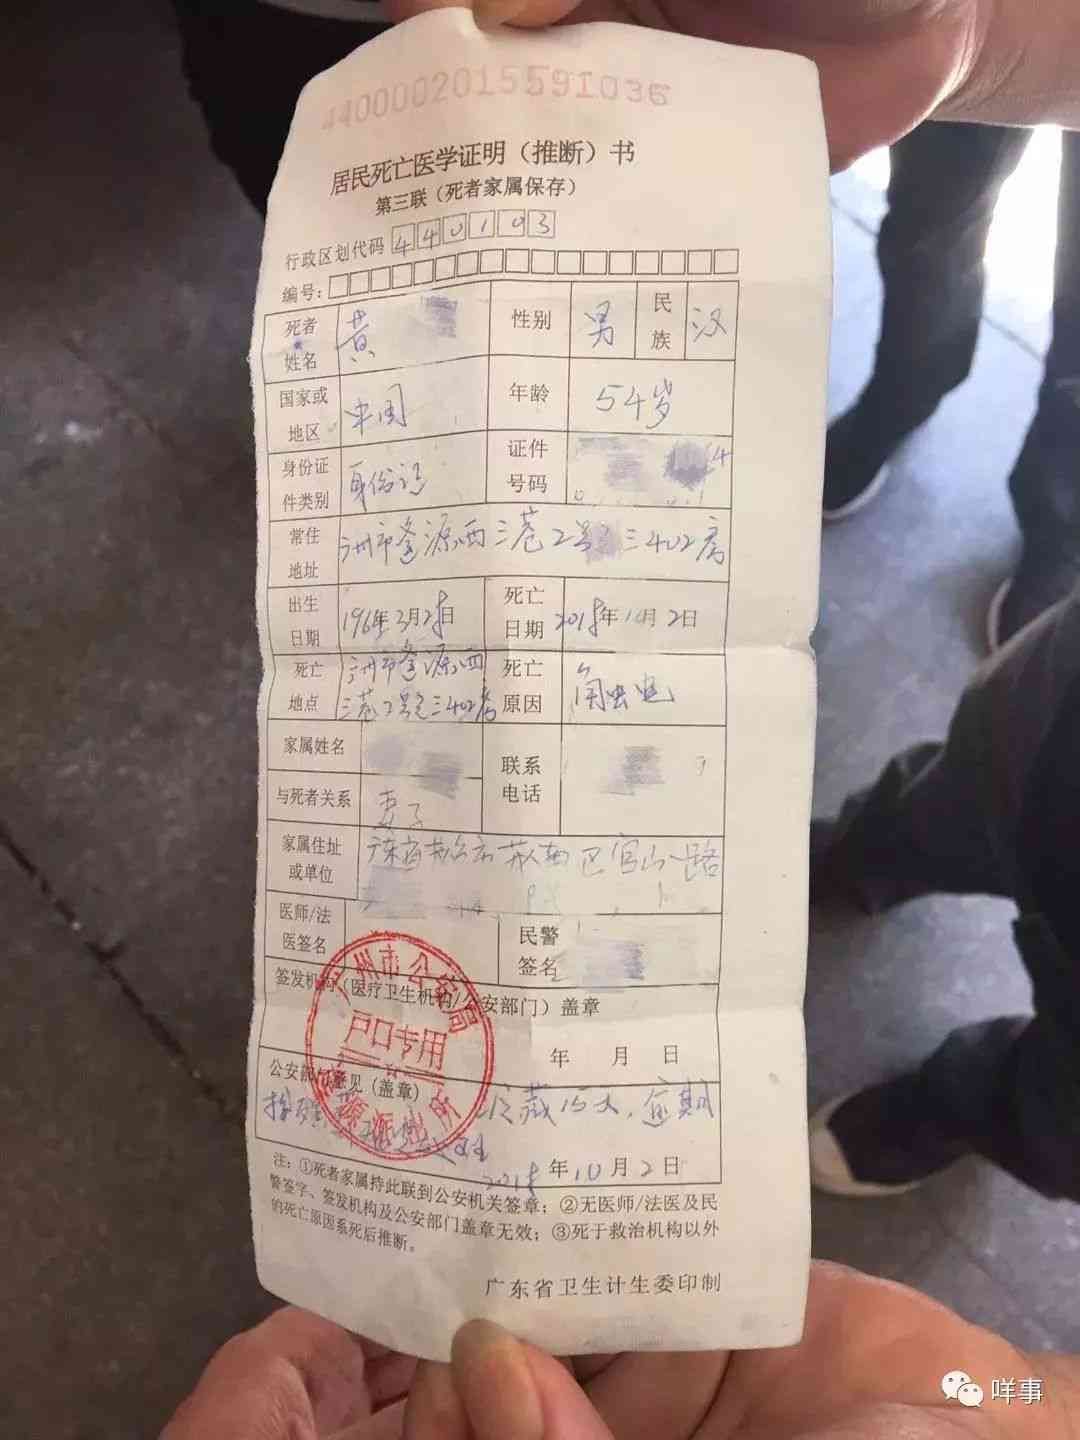 4400002015591036
居民死亡医学证明（推断）书
第三联（死者家属保存）
行政区划代码 440103
编号:
死者姓名 黄 性别 男 民族 汉
国家或地区 中国 年龄 54岁
身份证件类别 身份证 证件号码
常住地址 广州市逢源西三巷2号 三402房
出生日期 196 年3月28日 死亡日期 2018年10月2日
死亡地点 广州市逢源西三巷2号 三402房 死亡原因
家属姓名 联系电话
与死者关系 妻子
家属住址或单位 广东省 区官山一路
医师/法医签名 民警签名
签发机构（医疗卫生机构/公安部门）盖章
年 月 日
公安部门意见（盖章）
冷藏15天,逾期
2018年10月2日
广州市公安局
户口专用
逢源派出所
注：①死者家属持此联到公安机关签章；②无医师/法医及民
警签字、签发机构及公安部门盖章无效；③死于救治机构以外
的死亡原因系死后推断。
广东省卫生计生委印制
咩事